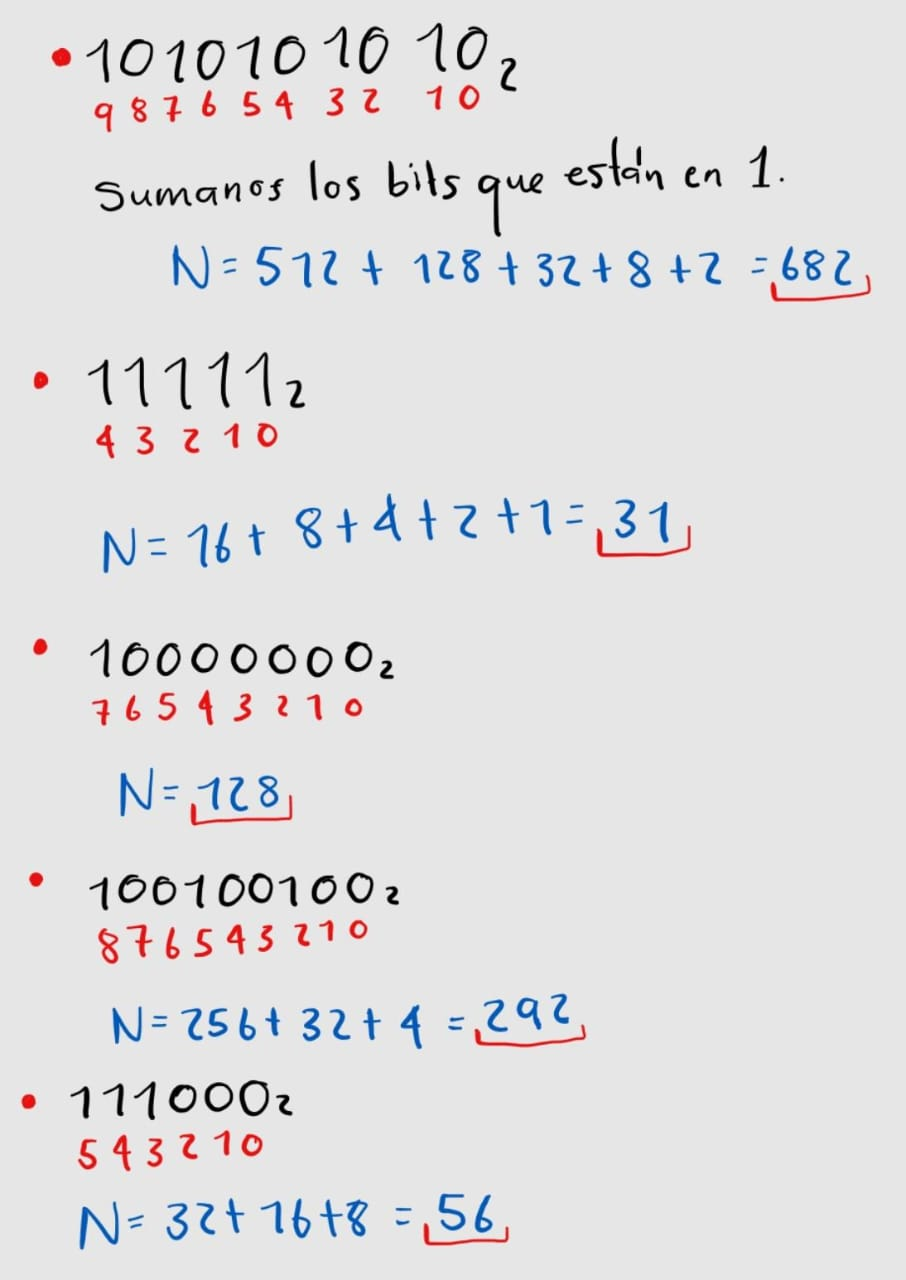 • 1010101010₂
9 8 7 6 5 4 3 2 1 0
Sumanos los bits que están en 1.
N = 512 + 128 + 32 + 8 + 2 = 682
• 11111₂
4 3 2 1 0
N = 16 + 8 + 4 + 2 + 1 = 31
• 10000000₂
7 6 5 4 3 2 1 0
N = 128
• 100100100₂
8 7 6 5 4 3 2 1 0
N = 256 + 32 + 4 = 292
• 111000₂
5 4 3 2 1 0
N = 32 + 16 + 8 = 56